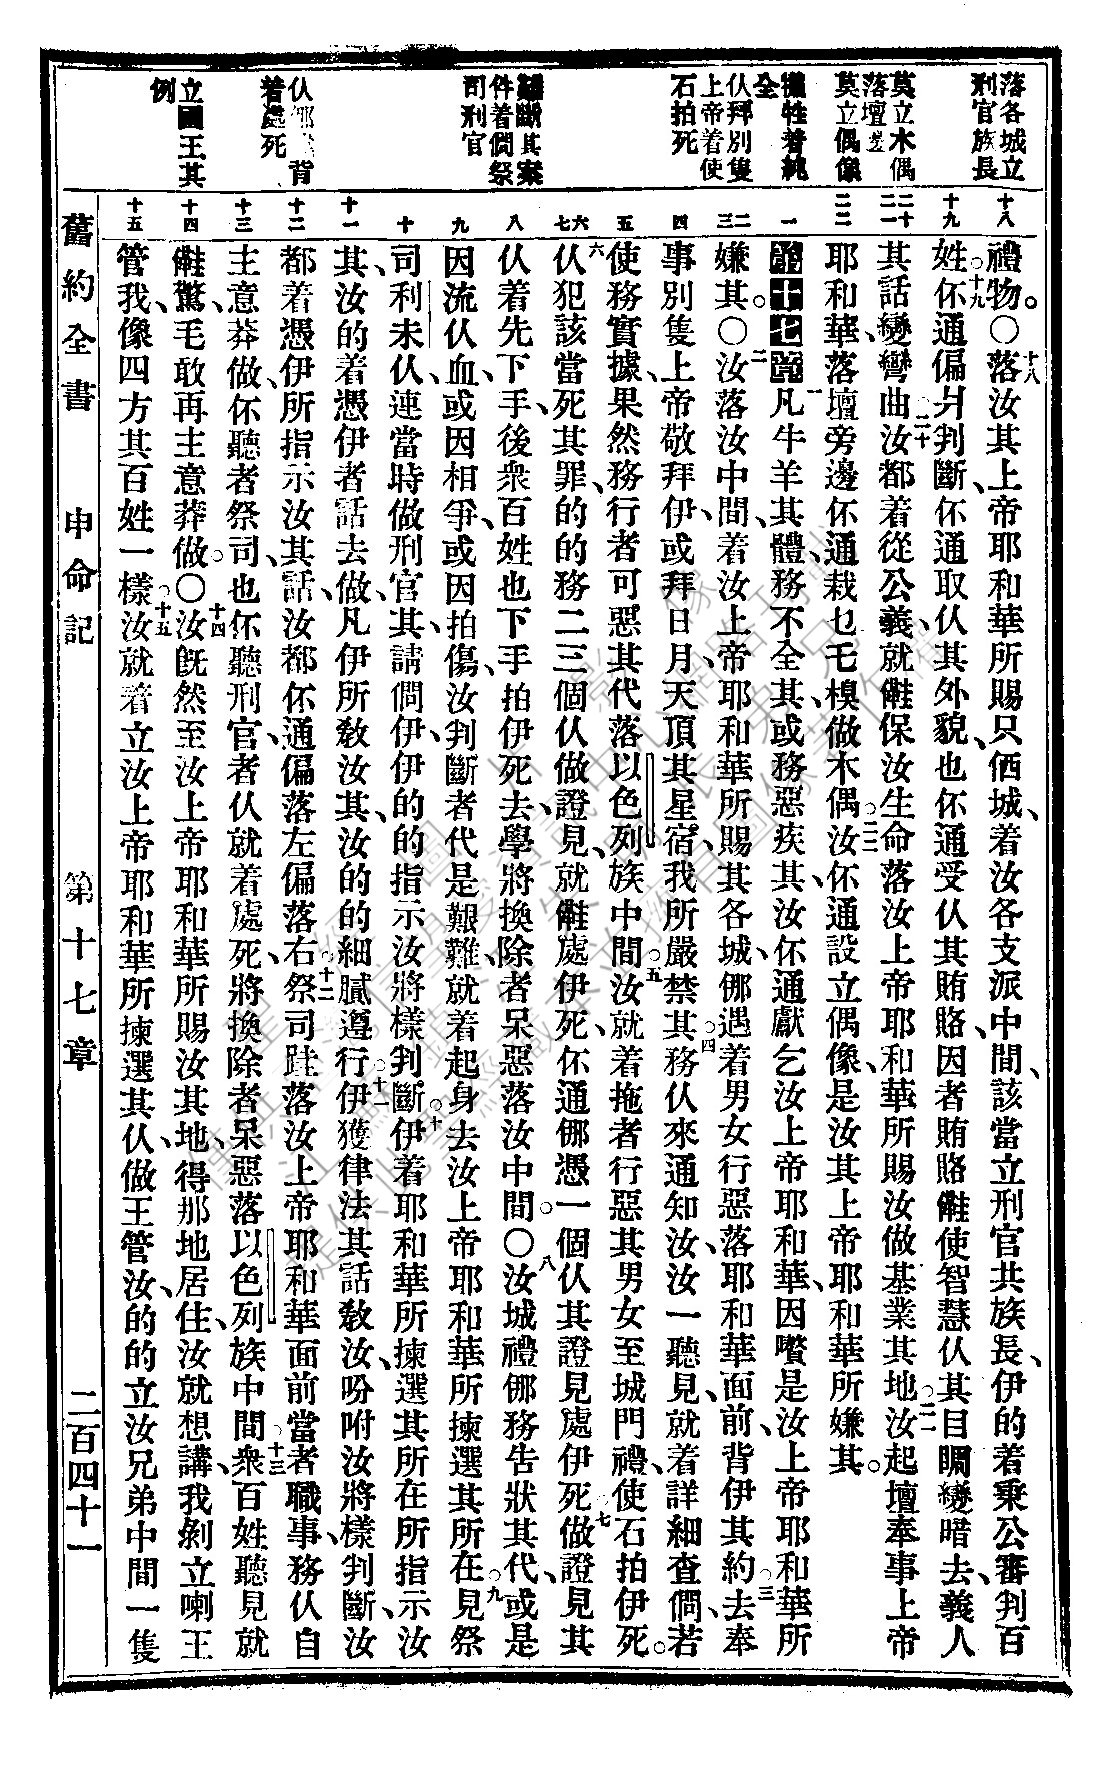 落各城立
刑官族長
莫立木偶
落壇
莫立偶像
犧牲着純
全
仈拜別隻
上帝着使
石拍死
難斷其案
件着問祭
司刑官
仈
背
着處死
立國王其
例
十八
十九
二十
二一
二二
一
二
三
四
五
六
七
八
九
十
十一
十二
十三
十四
十五
禮物。〇十八落汝其上帝耶和華所賜只個城、着汝各支派中間、該當立刑官共族長、伊的着秉公審判百
姓。十九伓通偏爿判斷、伓通取仈其外貌、也伓通受仈其賄賂、因者賄賂使智慧仈其目睭變暗去、義人
其話變彎曲。二十汝都着從公義、就保汝生命、落汝上帝耶和華所賜汝做基業其地。二一汝起壇奉事上帝
耶和華、落壇旁邊伓通栽乜乇樹做木偶。二二汝伓通設立偶像、是汝其上帝耶和華所嫌其。
第十七章 一凡牛羊其體務不全其、或務惡疾其、汝伓通獻乞汝上帝耶和華、因是汝上帝耶和華所
嫌其。〇二汝落汝中間、着汝上帝耶和華所賜其各城、倻遇着男女行惡、落耶和華面前、背伊其約、三去奉
事別隻上帝、敬拜伊、或拜日月、天頂其星宿、我所嚴禁其。四務仈來通知汝、汝一聽見、就着詳細查問、若
使務實據、果然務行者可惡其代、落以色列族中間、五汝就着拖者行惡其男女、至城門禮、使石拍伊死。
六仈犯該當死其罪、的的務二三個仈做證見、就處伊死、伓通倻憑一個仈其證見處伊死。七做證見其
仈着先下手、後衆百姓也下手、拍伊死去、學將換除者呆惡、落汝中間。〇八汝城禮倻務告狀其代、或是
因流仈血、或因相爭、或因拍傷、汝判斷者代是艱難、就着起身去汝上帝耶和華所揀選其所在、九見祭
司利未仈、連當時做刑官其、請問伊、伊的的指示汝將樣判斷。十伊着耶和華所揀選其所在、所指示汝
其、汝的着憑伊者話去做、凡伊所敎汝其、汝的的細膩遵行。十一伊獲律法其話敎汝、吩咐汝將樣判斷、汝
都着憑伊所指示汝其話、汝都伓通偏落左偏落右。十二祭司跬落汝上帝耶和華面前當者職事、務仈自
主意莽做、伓聽者祭司、也伓聽刑官、者仈就着處死、將換除者呆惡、落以色列族中間。十三衆百姓聽見就
驚、乇敢再主意莽做。〇十四汝旣然至汝上帝耶和華所賜汝其地、得那地居住、汝就想講、我剝立喇王
管我、像四方其百姓一樣。十五汝就着立汝上帝耶和華所揀選其仈、做王管汝、的的立汝兄弟中間一隻
舊約全書 申命記 第十七章 二百四十一